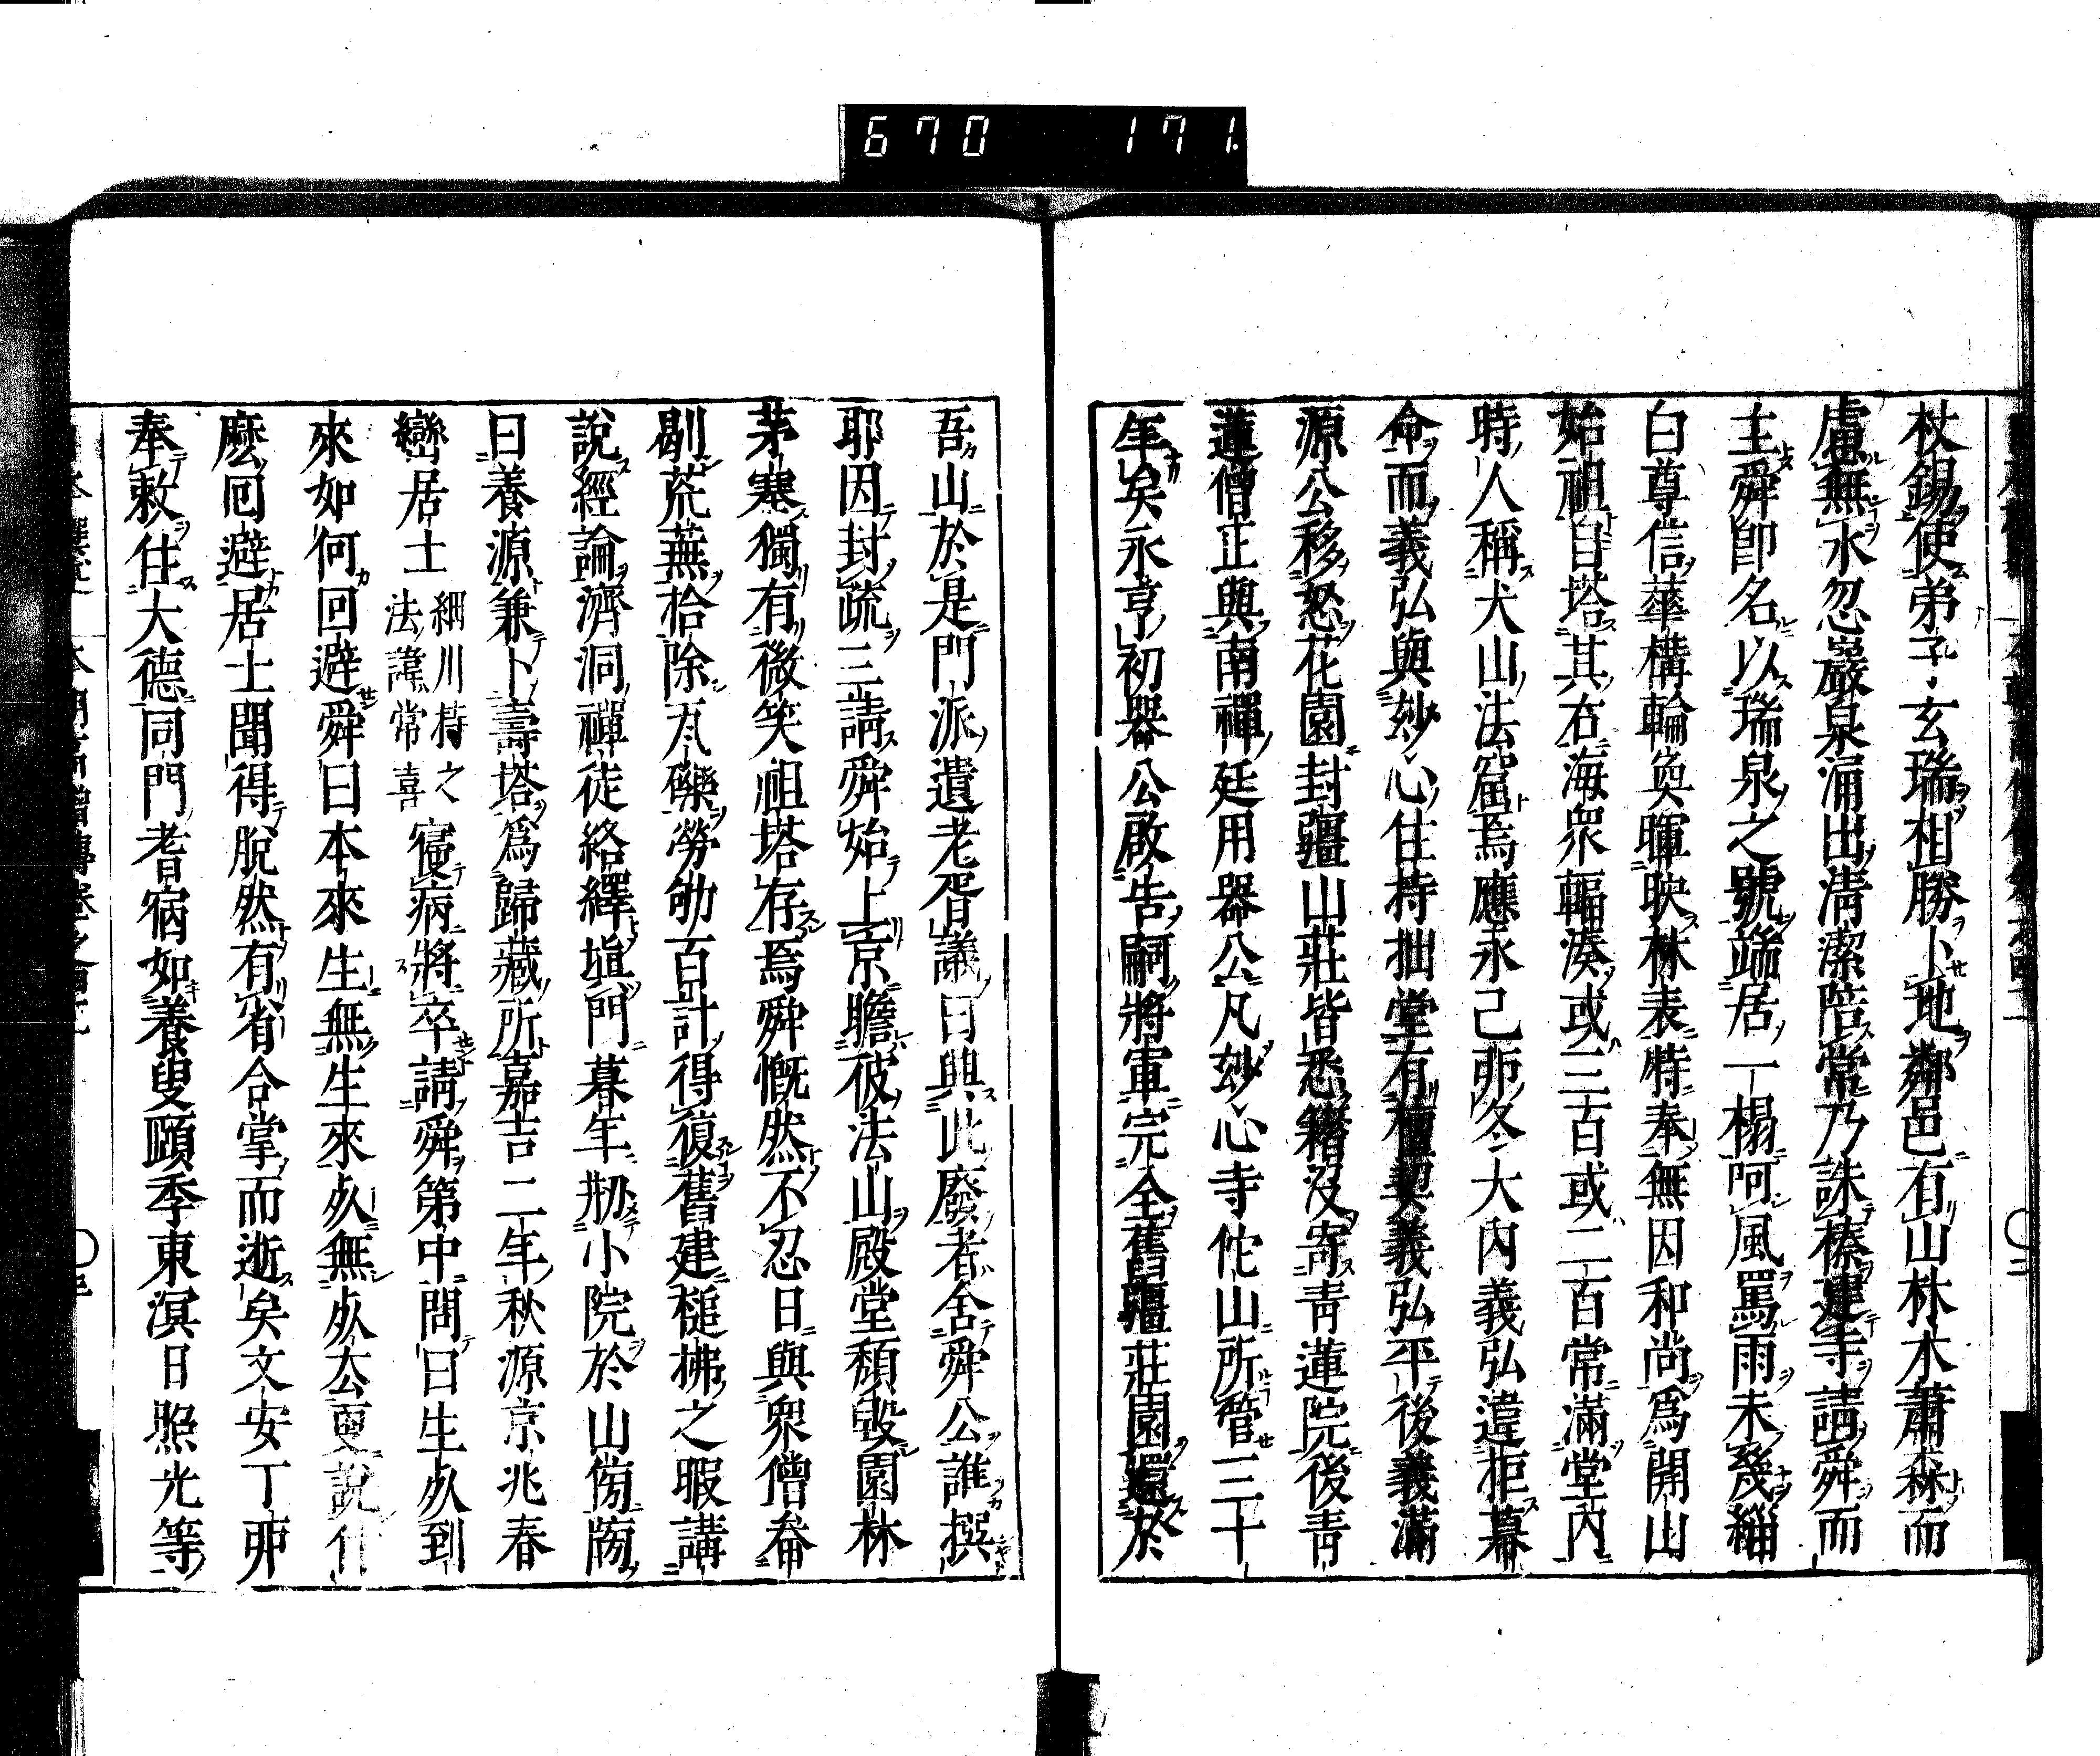 670 171
杖錫使弟子玄瑞相勝卜地鄰邑有山林木蕭森而
慮無水忽巖泉涌出淸潔陪常乃誅榛建寺請舜而
主舜卽名以瑞泉之號端居一榻阿風罵雨未幾緇
白尊信華構輪奐暉映林表特奉無因和尚爲開山
始祖自塔其右海衆輻湊或三百或二百常滿堂內
時人稱犬山法窟焉應永己卯冬大內義弘違拒幕
命而義弘與玅心住持拙堂有檀契義弘平後義滿
源公移怒花園封疆山莊皆悉籍沒寄靑蓮院後靑
蓮僧正與南禪廷用器公凡玅心寺佗山所管三十
年矣永享初器公啟告嗣將軍完全舊疆莊園還於
吾山於是門派遺老胥議曰興此廢者舍舜公誰撰
耶因封疏三請舜始上京瞻彼法山殿堂頹毀園林
茅塞獨有微笑祖塔存焉舜慨然不忍日與衆僧畚
剔荒蕪拾除瓦礫勞劬百計得復舊建槌拂之暇講
說經論濟洞禪徒絡繹塡門暮年剏小院於山傍牓
曰養源兼卜壽塔爲歸藏所嘉吉二年秋源京兆春
巒居士 細川持之法諱常喜 寢病將卒請舜第中問曰生死到
來如何回避舜曰本來生無生來死無死太更說什
麽回避居士聞得脫然有省合掌而逝矣文安丁卯
奉敕住大德同門耆宿如養叟頤季東溟日照光等